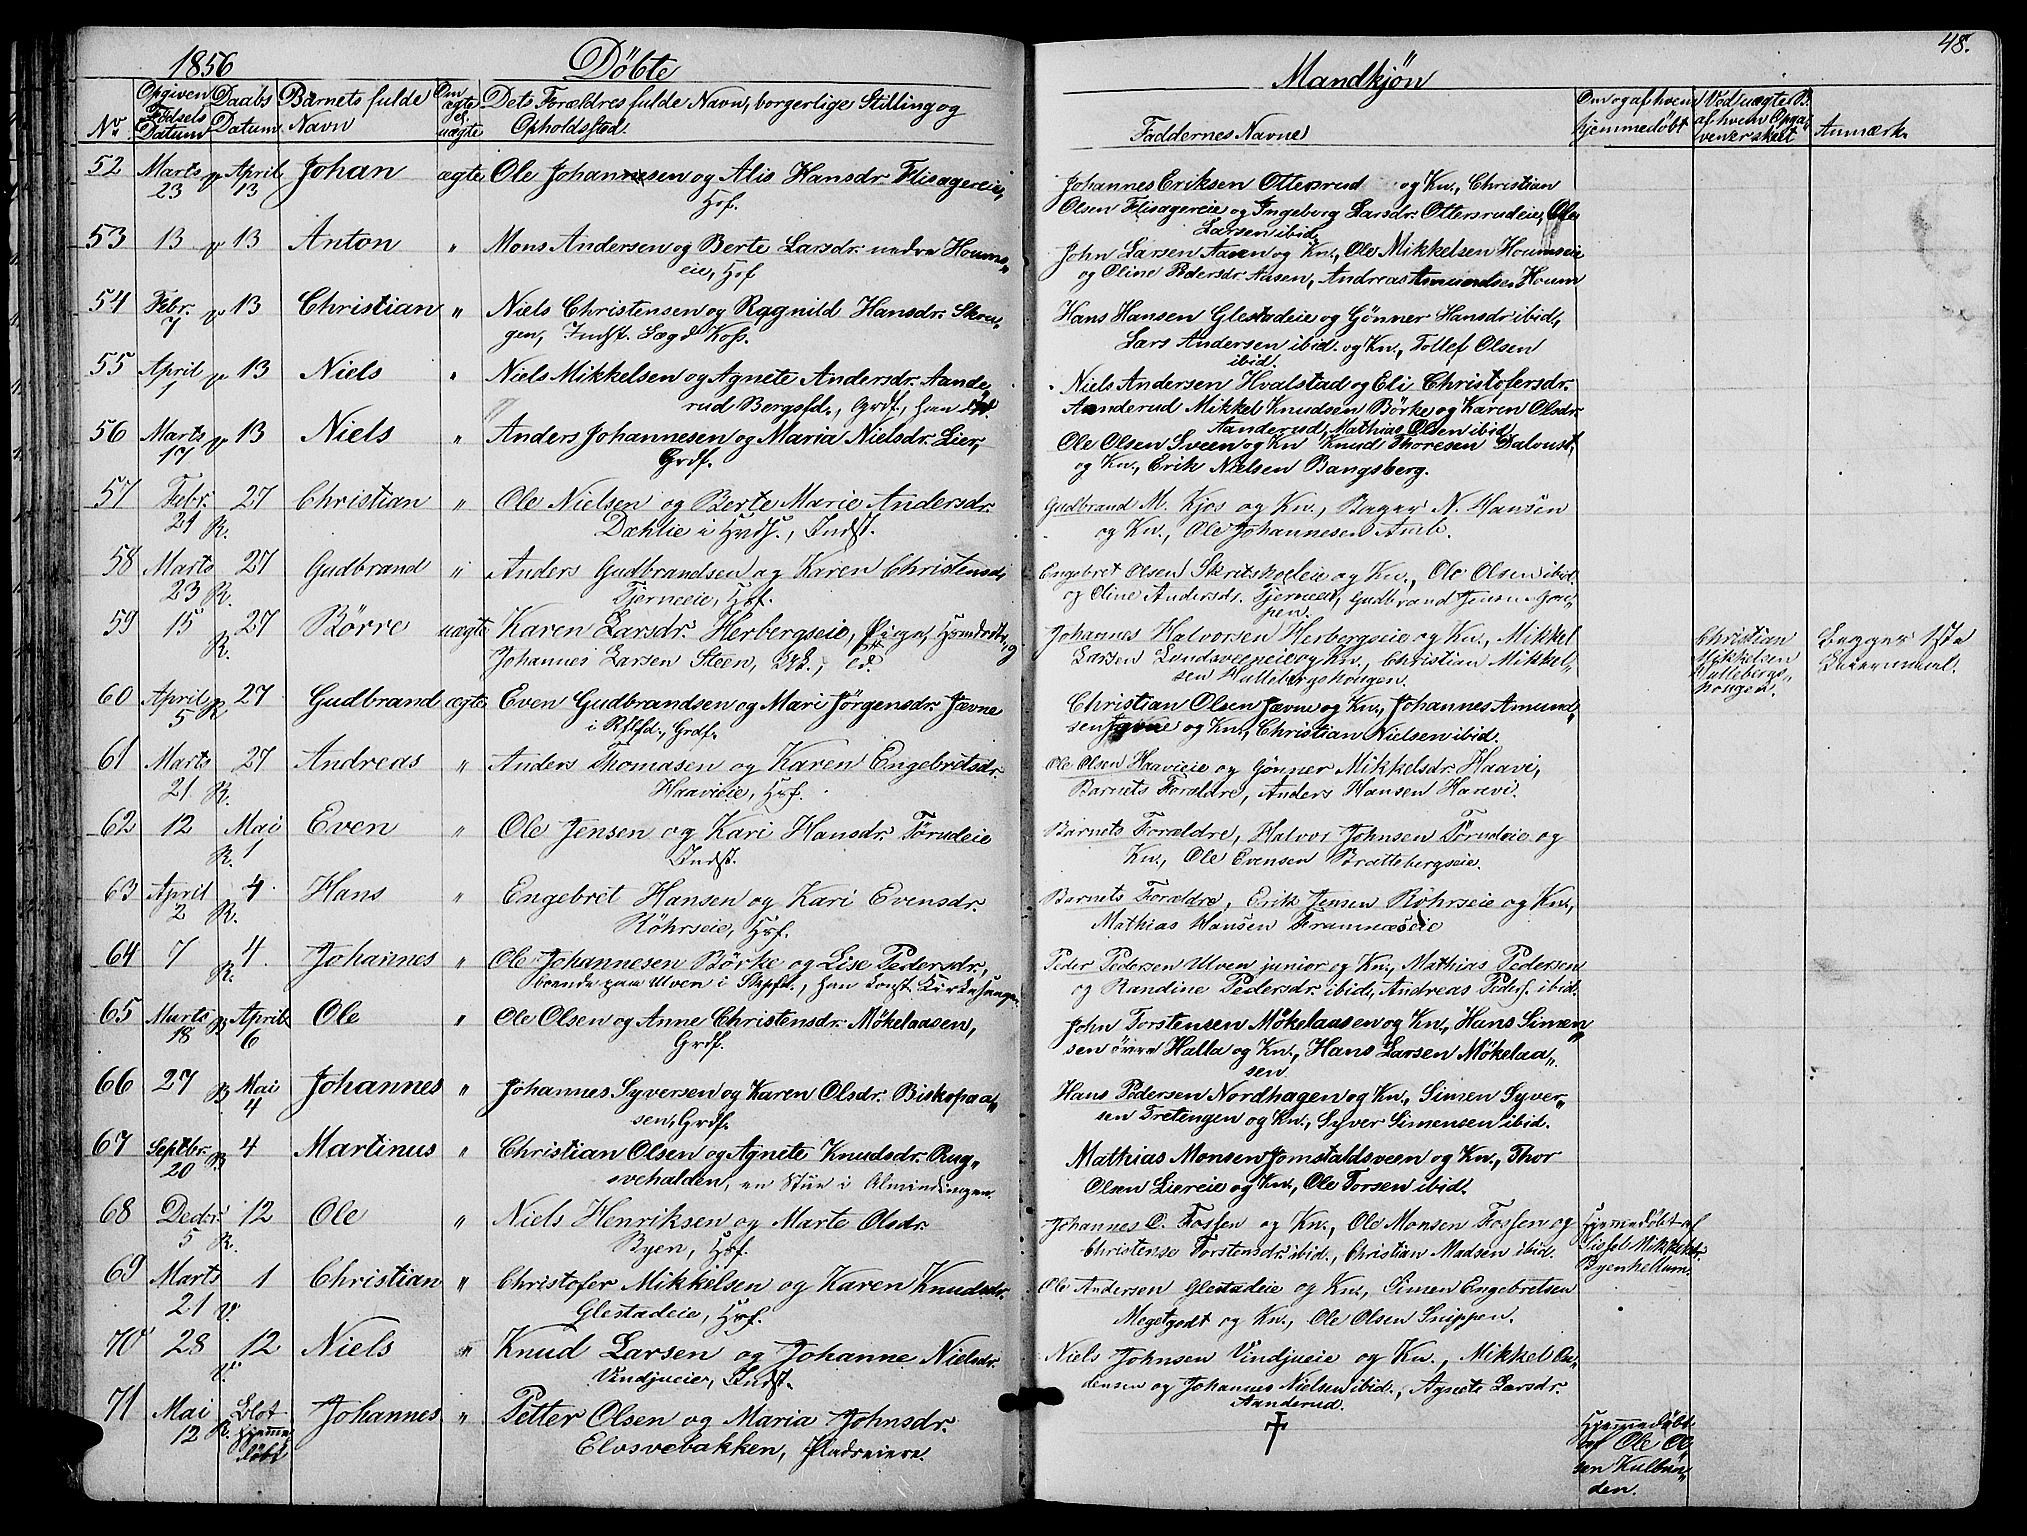 1856 Döbte
Mandkjön 48.
No. Opgiven Födsels Datum Daabs Datum Barnets fulde Navn Om ægte el. uægte Dets Forældres fulde Navn, borgerlige Stilling og Opholdssted.
Faddernes Navne Om og af hvem hjemmedöbt Ved uægte B. af hvem Opgavener skeet Anmærk.
52 Marts 23 v April 13 Johan ægte Ole Johannesen og Alis Hansdr. Flisagereie,
Hsf.
Johannes Eriksen Ottersrud og Kn., Christian
Olsen Flisagereie og Ingeborg Larsdr. Ottersrudeie, Ole
Larsen ibid.
53 13 v 13 Anton " Mons Andersen og Berte Larsdr. nedre Houms„
eie, Hsf
John Larsen Aasen og Kn., Ole Mikkelsen Houmseie
og Oline Pedersdr. Aasen, Andreas Amundsen Houm
54 Febr. 7 v 13 Christian " Niels Christensen og Ragnild Hansdr. Skru„
gen, Indst. Lægd Kofs.
Hans Hansen Glestadeie og Gönner Hansdr. ibid.,
Lars Andersen ibid. og Kn., Tollef Olsen
ibid.
55 April 1 v 13 Niels " Niels Mikkelsen og Agnete Andersdr. Aande„
rud Bergsfd., Grdf., han
Niels Andersen Hvalstad og Eli Christofersdr.
Aanderud Mikkel Knudsen Börke og Karen Olsdr.
Aanderud, Mathias Olsen ibid.
56 Marts 17 v 13 Niels " Anders Johannesen og Maria Nielsdr. Lier,
Grdf.
Ole Olsen Sveen og Kn Knud Thoresen Dalvust,
og Kn., Erik Nielsen Bangsberg.
57 Febr. 24 R. 27 Christian " Ole Nielsen og Berte Marie Andersdr.
Dæhlie i , Indst.
Gudbrand M. Kjos og Kn., Bager N. Hansen
og Kn., Ole Johannesen Aule.
58 Marts 23 R. 27 Gudbrand " Anders Gudbrandsen og Karen Christensd.,
Tjerneeie, Hsf.
Engebret Olsen Skritsholeie og Kn., Ole Olsen ibid.
og Oline Andersdr. Tjerneeie, Gudbrand Jensen
pen.
59 15 R. 27 Börre uægte Karen Larsdr. Herbergseie, Pige, og
Johannes Larsen Steen, Ugk.,
Johannes Halvorsen Herbergseie og Kn., Mikkel
Larsen og Kn., Christian Mikkel„
sen Hullebergshougen.
Christian
Mikkelsen
Hullebergs„
hougen.
Begges 1ste
Leiermaal.
60 April 5 R 27 Gudbrand ægte Even Gudbrandsen og Mari Jörgensdr. Jævne
i Rfsfd., Grdf.
Christian Olsen Jævne og Kn., Johannes Amund„
sen Jævne og Kn., Christian Nielsen ibid.
61 Marts 21 R. 27 Andreas " Anders Thomasen og Karen Engebretsdr.
Haavieie, Hsf.
Ole Olsen Haavieie og Gönner Mikkelsdr. Haavi,
Barnets Forældre, Anders Hansen Haavi.
62 12 R. Mai 1 Even " Ole Jensen og Kari Hansdr. Törudeie
Indst.
Barnets Forældre, Halvor Johnsen Törudeie og
Kn., Ole Evensen Brattebergseie.
63 April 2 R. 4 Hans " Engebret Hansen og Kari Evensdr.
Röhrseie, Hsf.
Barnets Forældre, Erik Jensen Röhrseie og Kn.,
Mathias Hansen Framnæseie
64 7 R. 4. Johannes " Ole Johannesen Börke og Lise Pedersdr.,
boende paa Ulven i , han const. Kirkesanger.
Peder Pedersen Ulven junior og Kn., Mathias Pedersen
og Randine Pedersdr. ibid., Andreas Peders. ibid.
65 Marts 18 B April 6 Ole " Ole Olsen og Anne Christensdr. Mökelaasen,
Grdf.
John Torstensen Mökelaasen og Kn., Hans Simen„
sen övre Halla og Kn., Hans Larsen Mökelaa„
sen.
66 27 B. Mai 4 Johannes " Johannes Syversen og Karen Olsdr. Biskopaa„
sen, Grdf.
Hans Pedersen Nordhagen og Kn., Simen Syver„
sen Tretengen og Kn., Syver Simensen ibid.
67 Septbr. 20 B 4 Martinus " Christian Olsen og Agnete Knudsdr. Rug„
svehalden, en Stue i Almindingen.
Mathias Monsen Jomstaldsveen og Kn., Thor
Olsen Liereie og Kn., Ole Torsen ibid.
68 Decbr. 5 R. 12 Ole " Niels Henriksen og Marte Olsdr.
Byen, Hsf.
Johannes O. Fossen og Kn., Ole Monsen Fossen og
Christense Torstensdr. ibid., Christian Madsen ibid.
Hjemmedöbt af
Mikkelsdr.
Byenhellum.
69 Marts 21 V. 1 Christian " Christofer Mikkelsen og Karen Knudsdr.
Glestadeie, Hsf.
Ole Andersen Glestadeie og Kn., Simen Engebretsen
Megetgodt og Kn., Ole Olsen Snippen.
70 28 V. 12 Niels " Knud Larsen og Johanne Nielsdr.
Vindjueie, Indst.
Niels Johnsen Vindjueie og Kn., Mikkel
og Johannes Nielsen ibid., Agnete Larsdr.
Aanderud.
71 Mai 12 R. blot hjemme„ döbt Johannes " Petter Olsen og Maria Johnsdr.
Elvsvebakken, Pladseiere.
†
Hjemmedöbt
af Ole Ol„
sen Kulbun„
den.